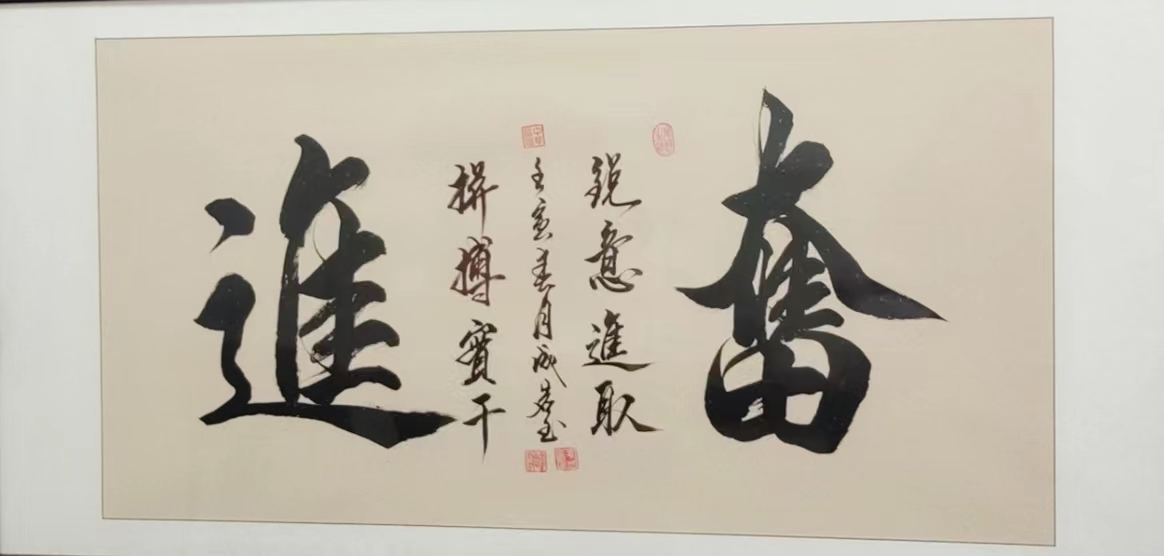 奮
銳意進取
壬寅春月成岩玉
拼搏實干
進